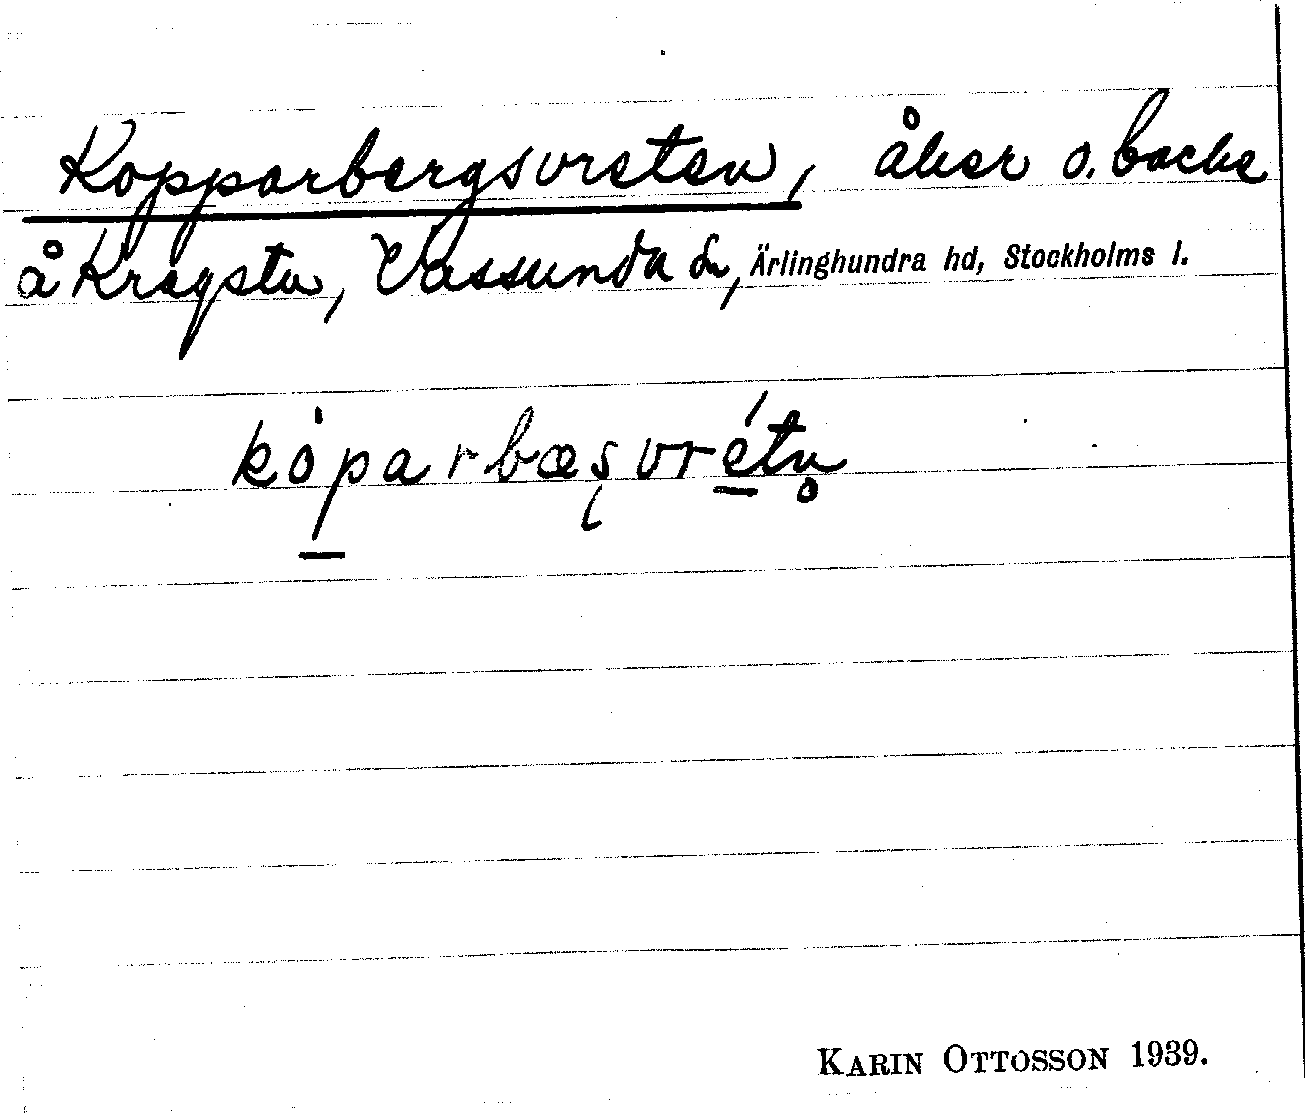 Kopparbergsvreten, åker o. backe
å Kragsta, Vassunda sn, Ärlinghundra hd, Stockholms l.
kóparbæʂvrétn̥
KARIN OTTOSSON 1939.